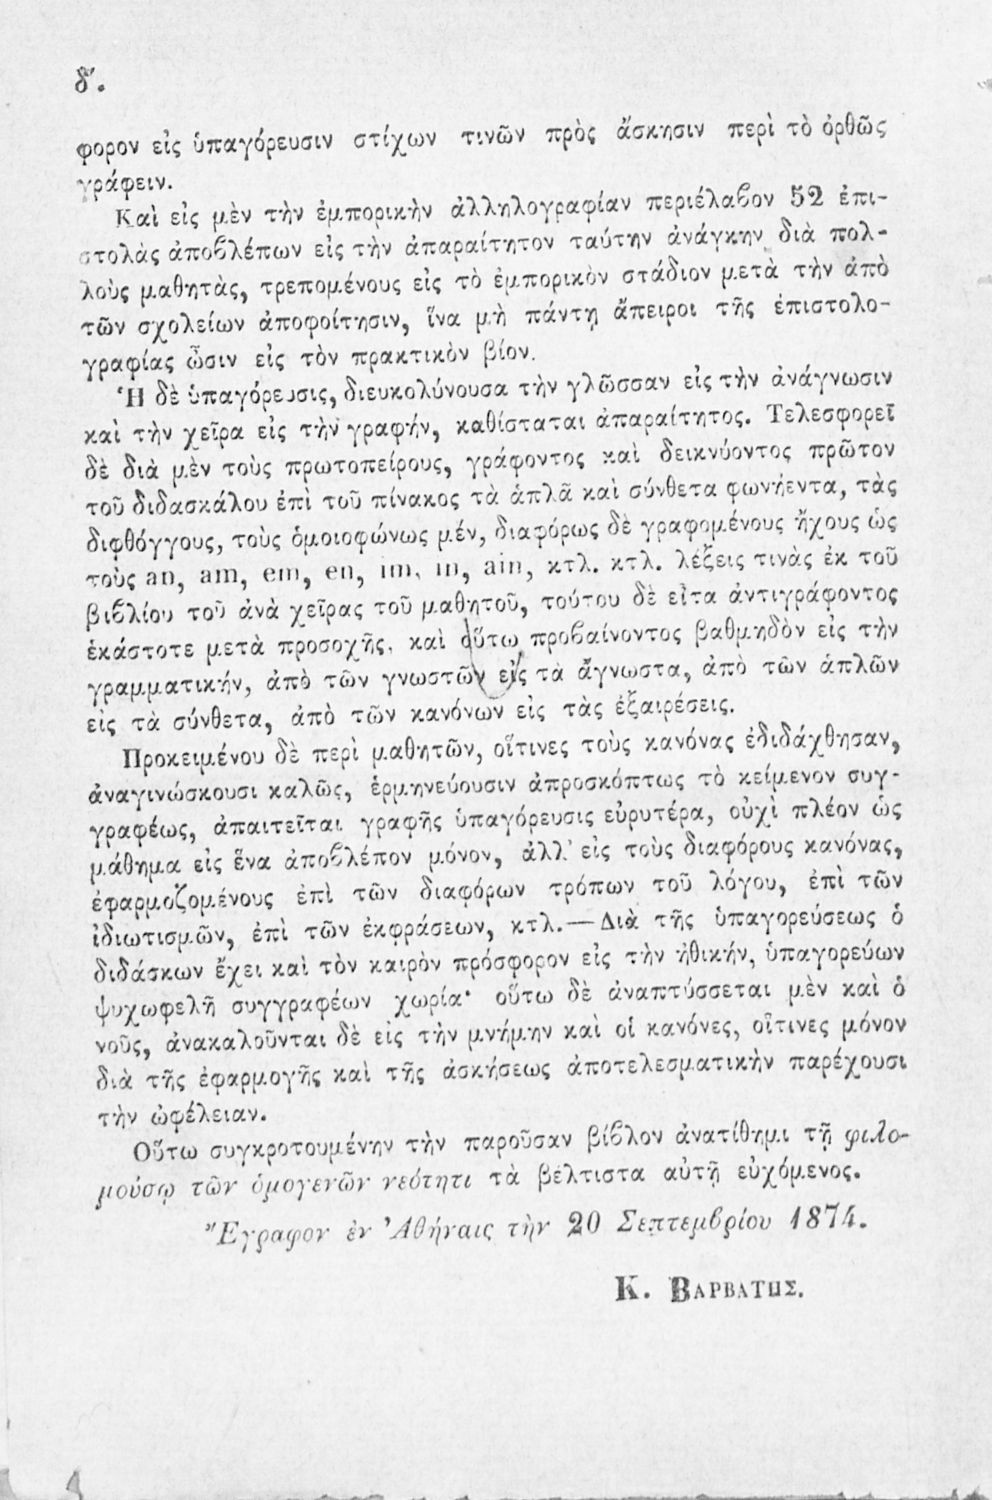 δ΄.
φορον εἰς ὑπαγόρευσιν στίχων τινῶν πρὸς ἄσκησιν περὶ τὸ ὀρθῶς
γράφειν.
Καὶ εἰς μὲν τὴν ἐμπορικὴν ἀλληλογραφίαν περιέλαβον 52 ἐπι-
στολὰς ἀποβλέπων εἰς τὴν ἀπαραίτητον ταύτην ἀνάγκην διὰ πολ-
λοὺς μαθητὰς, τρεπομένους εἰς τὸ ἐμπορικὸν στάδιον μετὰ τὴν ἀπὸ
τῶν σχολείων ἀποφοίτησιν, ἵνα μὴ πάντη ἄπειροι τῆς ἐπιστολο-
γραφίας ὦσιν εἰς τὸν πρακτικὸν βίον.
Ἡ δὲ ὑπαγόρευσις, διευκολύνουσα τὴν γλῶσσαν εἰς τὴν ἀνάγνωσιν
καὶ τὴν χεῖρα εἰς τὴν γραφήν, καθίσταται ἀπαραίτητος. Τελεσφορεῖ
δὲ διὰ μὲν τοὺς πρωτοπείρους, γράφοντος καὶ δεικνύοντος πρῶτον
τοῦ διδασκάλου ἐπὶ τοῦ πίνακος τὰ ἁπλᾶ καὶ σύνθετα φωνήεντα, τὰς
διφθόγγους, τοὺς ὁμοιοφώνως μέν, διαφόρως δὲ γραφομένους ἤχους ὡς
τοὺς an, am, em, en, im, in, ain, κτλ. κτλ. λέξεις τινὰς ἐκ τοῦ
βιβλίου τοῦ ἀνὰ χεῖρας τοῦ μαθητοῦ, τούτου δὲ εἶτα ἀντιγράφοντος
ἑκάστοτε μετὰ προσοχῆς, καὶ οὕτω προβαίνοντος βαθμηδὸν εἰς τὴν
γραμματικήν, ἀπὸ τῶν γνωστῶν εἰς τὰ ἄγνωστα, ἀπὸ τῶν ἁπλῶν
εἰς τὰ σύνθετα, ἀπὸ τῶν κανόνων εἰς τὰς ἐξαιρέσεις.
Προκειμένου δὲ περὶ μαθητῶν, οἵτινες τοὺς κανόνας ἐδιδάχθησαν,
ἀναγινώσκουσι καλῶς, ἑρμηνεύουσιν ἀπροσκόπτως τὸ κείμενον συγ-
γραφέως, ἀπαιτεῖται γραφῆς ὑπαγόρευσις εὐρυτέρα, οὐχὶ πλέον ὡς
μάθημα εἰς ἕνα ἀποβλέπον μόνον, ἀλλ᾽ εἰς τοὺς διαφόρους κανόνας,
ἐφαρμοζομένους ἐπὶ τῶν διαφόρων τρόπων τοῦ λόγου, ἐπὶ τῶν
ἰδιωτισμῶν, ἐπὶ τῶν ἐκφράσεων, κτλ.—Διὰ τῆς ὑπαγορεύσεως ὁ
διδάσκων ἔχει καὶ τὸν καιρὸν πρόσφορον εἰς τὴν ἠθικήν, ὑπαγορεύων
ψυχωφελῆ συγγραφέων χωρία· οὕτω δὲ ἀναπτύσσεται μὲν καὶ ὁ
νοῦς, ἀνακαλοῦνται δὲ εἰς τὴν μνήμην καὶ οἱ κανόνες, οἵτινες μόνον
διὰ τῆς ἐφαρμογῆς καὶ τῆς ἀσκήσεως ἀποτελεσματικὴν παρέχουσι
τὴν ὠφέλειαν.
Οὕτω συγκροτουμένην τὴν παροῦσαν βίβλον ἀνατίθημι τῇ φιλο-
μούσῳ τῶν ὁμογενῶν νεότητι τὰ βέλτιστα αὐτῇ εὐχόμενος.
Ἔγραφον ἐν Ἀθήναις τὴν 20 Σεπτεμβρίου 1874.
Κ. ΒΑΡΒΑΤΗΣ.